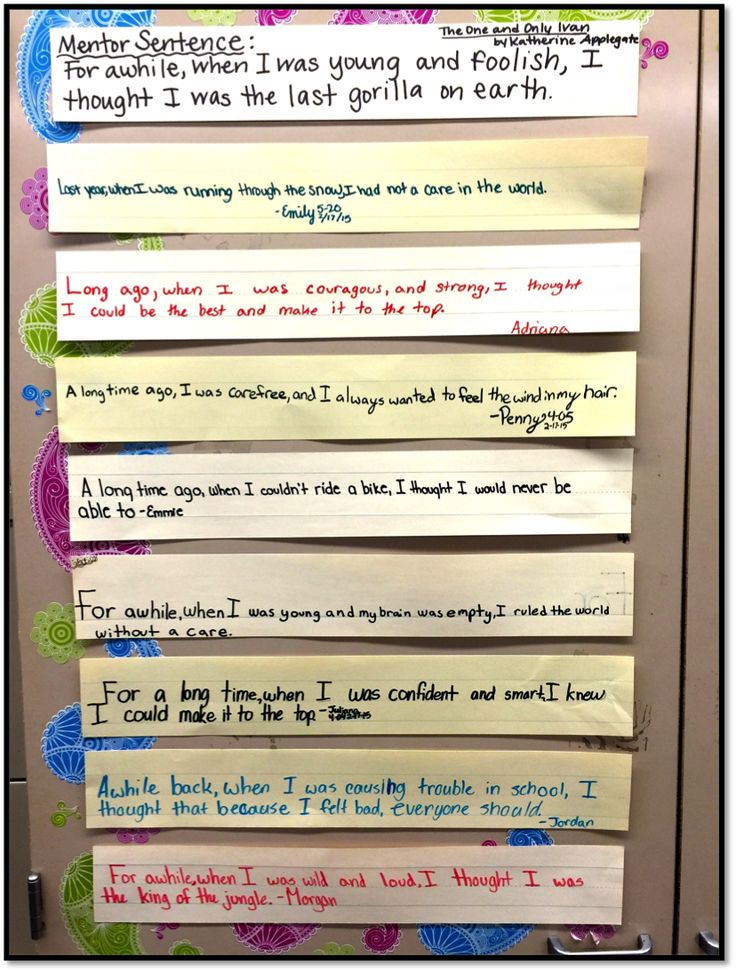 Mentor Sentence:
The One and Only Ivan
by Katherine Applegate
For awhile, when I was young and foolish, I
thought I was the last gorilla on earth.
Last year, when I was running through the snow, I had not a care in the world.
-Emily 5-20
2/17/15
Long ago, when I was couragous, and strong, I thought
I could be the best and make it to the top.
Adriana
A long time ago, I was carefree, and I always wanted to feel the wind in my hair.
-Penny 4-05
2-17-15
A long time ago, when I couldn't ride a bike, I thought I would never be
able to -Emmie
For awhile, when I was young and my brain was empty, I ruled the world
without a care.
For a long time, when I was confident and smart, I knew
I could make it to the top -Juliana
Awhile back, when I was causing trouble in school, I
thought that because I felt bad, everyone should.
-Jordan
For awhile, when I was wild and loud, I thought I was
the king of the jungle. -Morgan